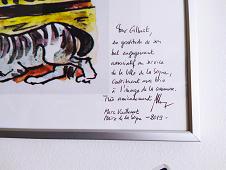 Pour Gilbert,
en gratitude de son
bel engagement
associatif au service
de la Ville de la Seyne,
à l'image de la commune.
Très amicalement
Marc Vuillemot
Maire de la Seyne - 2019 -